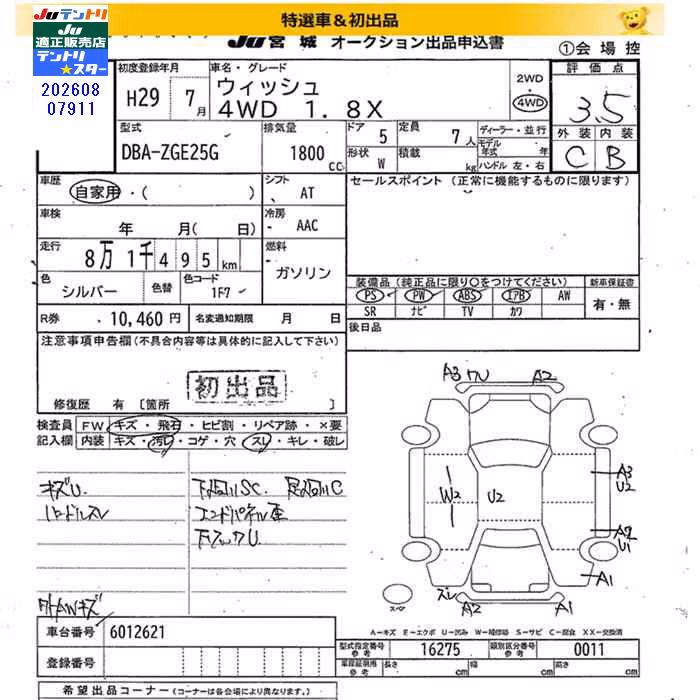 Juテントリ
Ju適正販売店
テントリ
★スター
202608
07911
特選車＆初出品
Ju宮城 オークション出品申込書
①会場控
初度登録年月 H29年 7月
車名・グレード
ウィッシュ
4WD 1.8X
2WD
・
4WD
評価点
3.5
外装 内装
C B
型式
DBA-ZGE25G
排気量
1800cc
ドア 5
形状 W
定員 7人
積載 kg
ディーラー・並行
モデル年式 年
ハンドル 左・右
車歴
自家用・( )
シフト
AT
セールスポイント (正常に機能するものに限ります)
車検
年 月(日)
冷房
AAC
走行
8万1千495km
燃料
ガソリン
色
シルバー
色替
色コード
1F7
装備品 (純正品に限り○をつけてください)
新車保証書
PS PW ABS エアB AW
SR ナビ TV カワ
有・無
R券 10,460円
名変通知期限 月 日
後日品
注意事項申告欄(不具合内容等は具体的に記入して下さい)
初出品
修復歴 有 [箇所 ]
検査員記入欄
FW キズ・飛石・ヒビ割・リペア跡・×要
内装 キズ・汚レ・コゲ・穴・スレ・キレ・破レ
キズU
ハンドルスレ
下廻りSC 足廻りC
エンドパネル歪
下フックU
外AWキズ
A3 ワレ A2
A3
U2
W2
U2
A2
U1
A1
スレ
A2
A1
スペア
A－キズ E－エクボ U－凹み W－補修跡 S－サビ C－腐食 XX－交換済
車台番号 6012621
型式指定番号 参考 16275
類別区分番号 参考 0011
登録番号
車庫証明用 参考 長さ cm 幅 cm 高さ cm
希望出品コーナー(コーナーは各会場により異なります。)